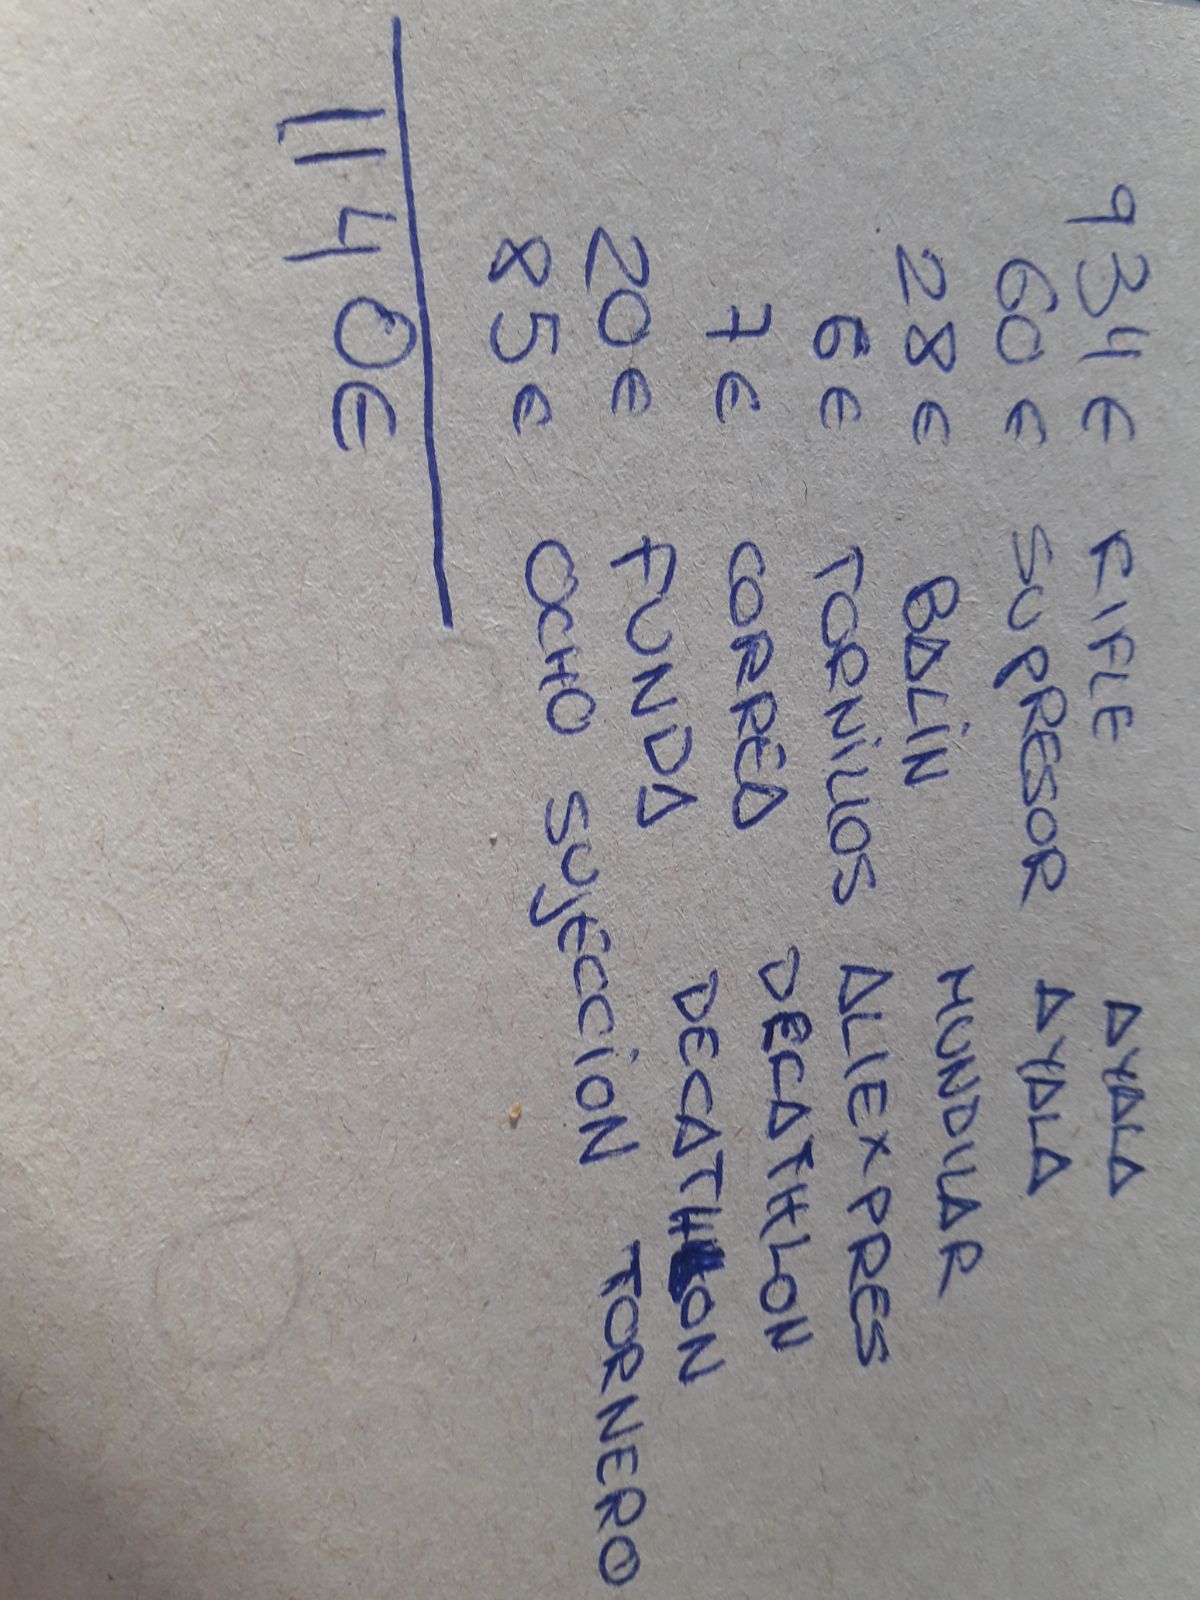 934 € RIFLE AYALA
60 € SUPRESOR AYALA
28 € BALÍN MUNDILAR
6 € TORNILLOS ALIEXPRES
7 € CORREA DECATHLON
20 € FUNDA DECATHLON
85 € OCHO SUJECCIÓN TORNERO
1140 €